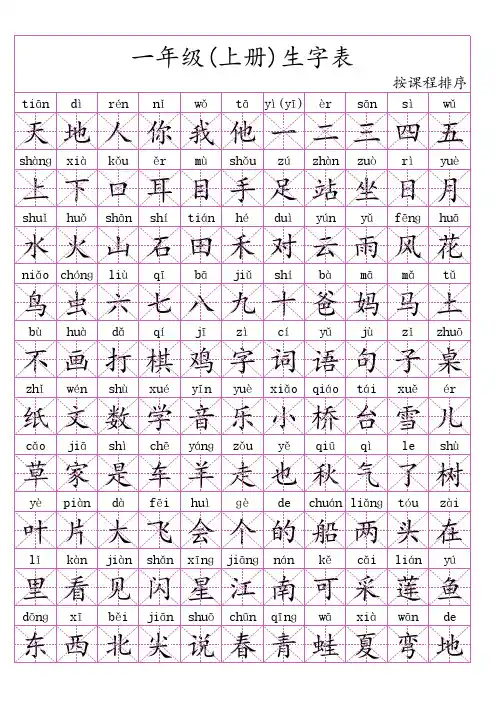 一年级(上册)生字表
按课程排序
tiān dì rén nǐ wǒ tā yì(yī) èr sān sì wǔ
天 地 人 你 我 他 一 二 三 四 五
shàng xià kǒu ěr mù shǒu zú zhàn zuò rì yuè
上 下 口 耳 目 手 足 站 坐 日 月
shuǐ huǒ shān shí tián hé duì yún yǔ fēng huā
水 火 山 石 田 禾 对 云 雨 风 花
niǎo chóng liù qī bā jiǔ shí bà mā mǎ tǔ
鸟 虫 六 七 八 九 十 爸 妈 马 土
bù huà dǎ qí jī zì cí yǔ jù zǐ zhuō
不 画 打 棋 鸡 字 词 语 句 子 桌
zhǐ wén shù xué yīn yuè xiǎo qiáo tái xuě ér
纸 文 数 学 音 乐 小 桥 台 雪 儿
cǎo jiā shì chē yáng zǒu yě qiū qì le shù
草 家 是 车 羊 走 也 秋 气 了 树
yè piàn dà fēi huì gè de chuán liǎng tóu zài
叶 片 大 飞 会 个 的 船 两 头 在
lǐ kàn jiàn shǎn xīng jiāng nán kě cǎi lián yú
里 看 见 闪 星 江 南 可 采 莲 鱼
dōng xī běi jiān shuō chūn qīng wā xià wān de
东 西 北 尖 说 春 青 蛙 夏 弯 地